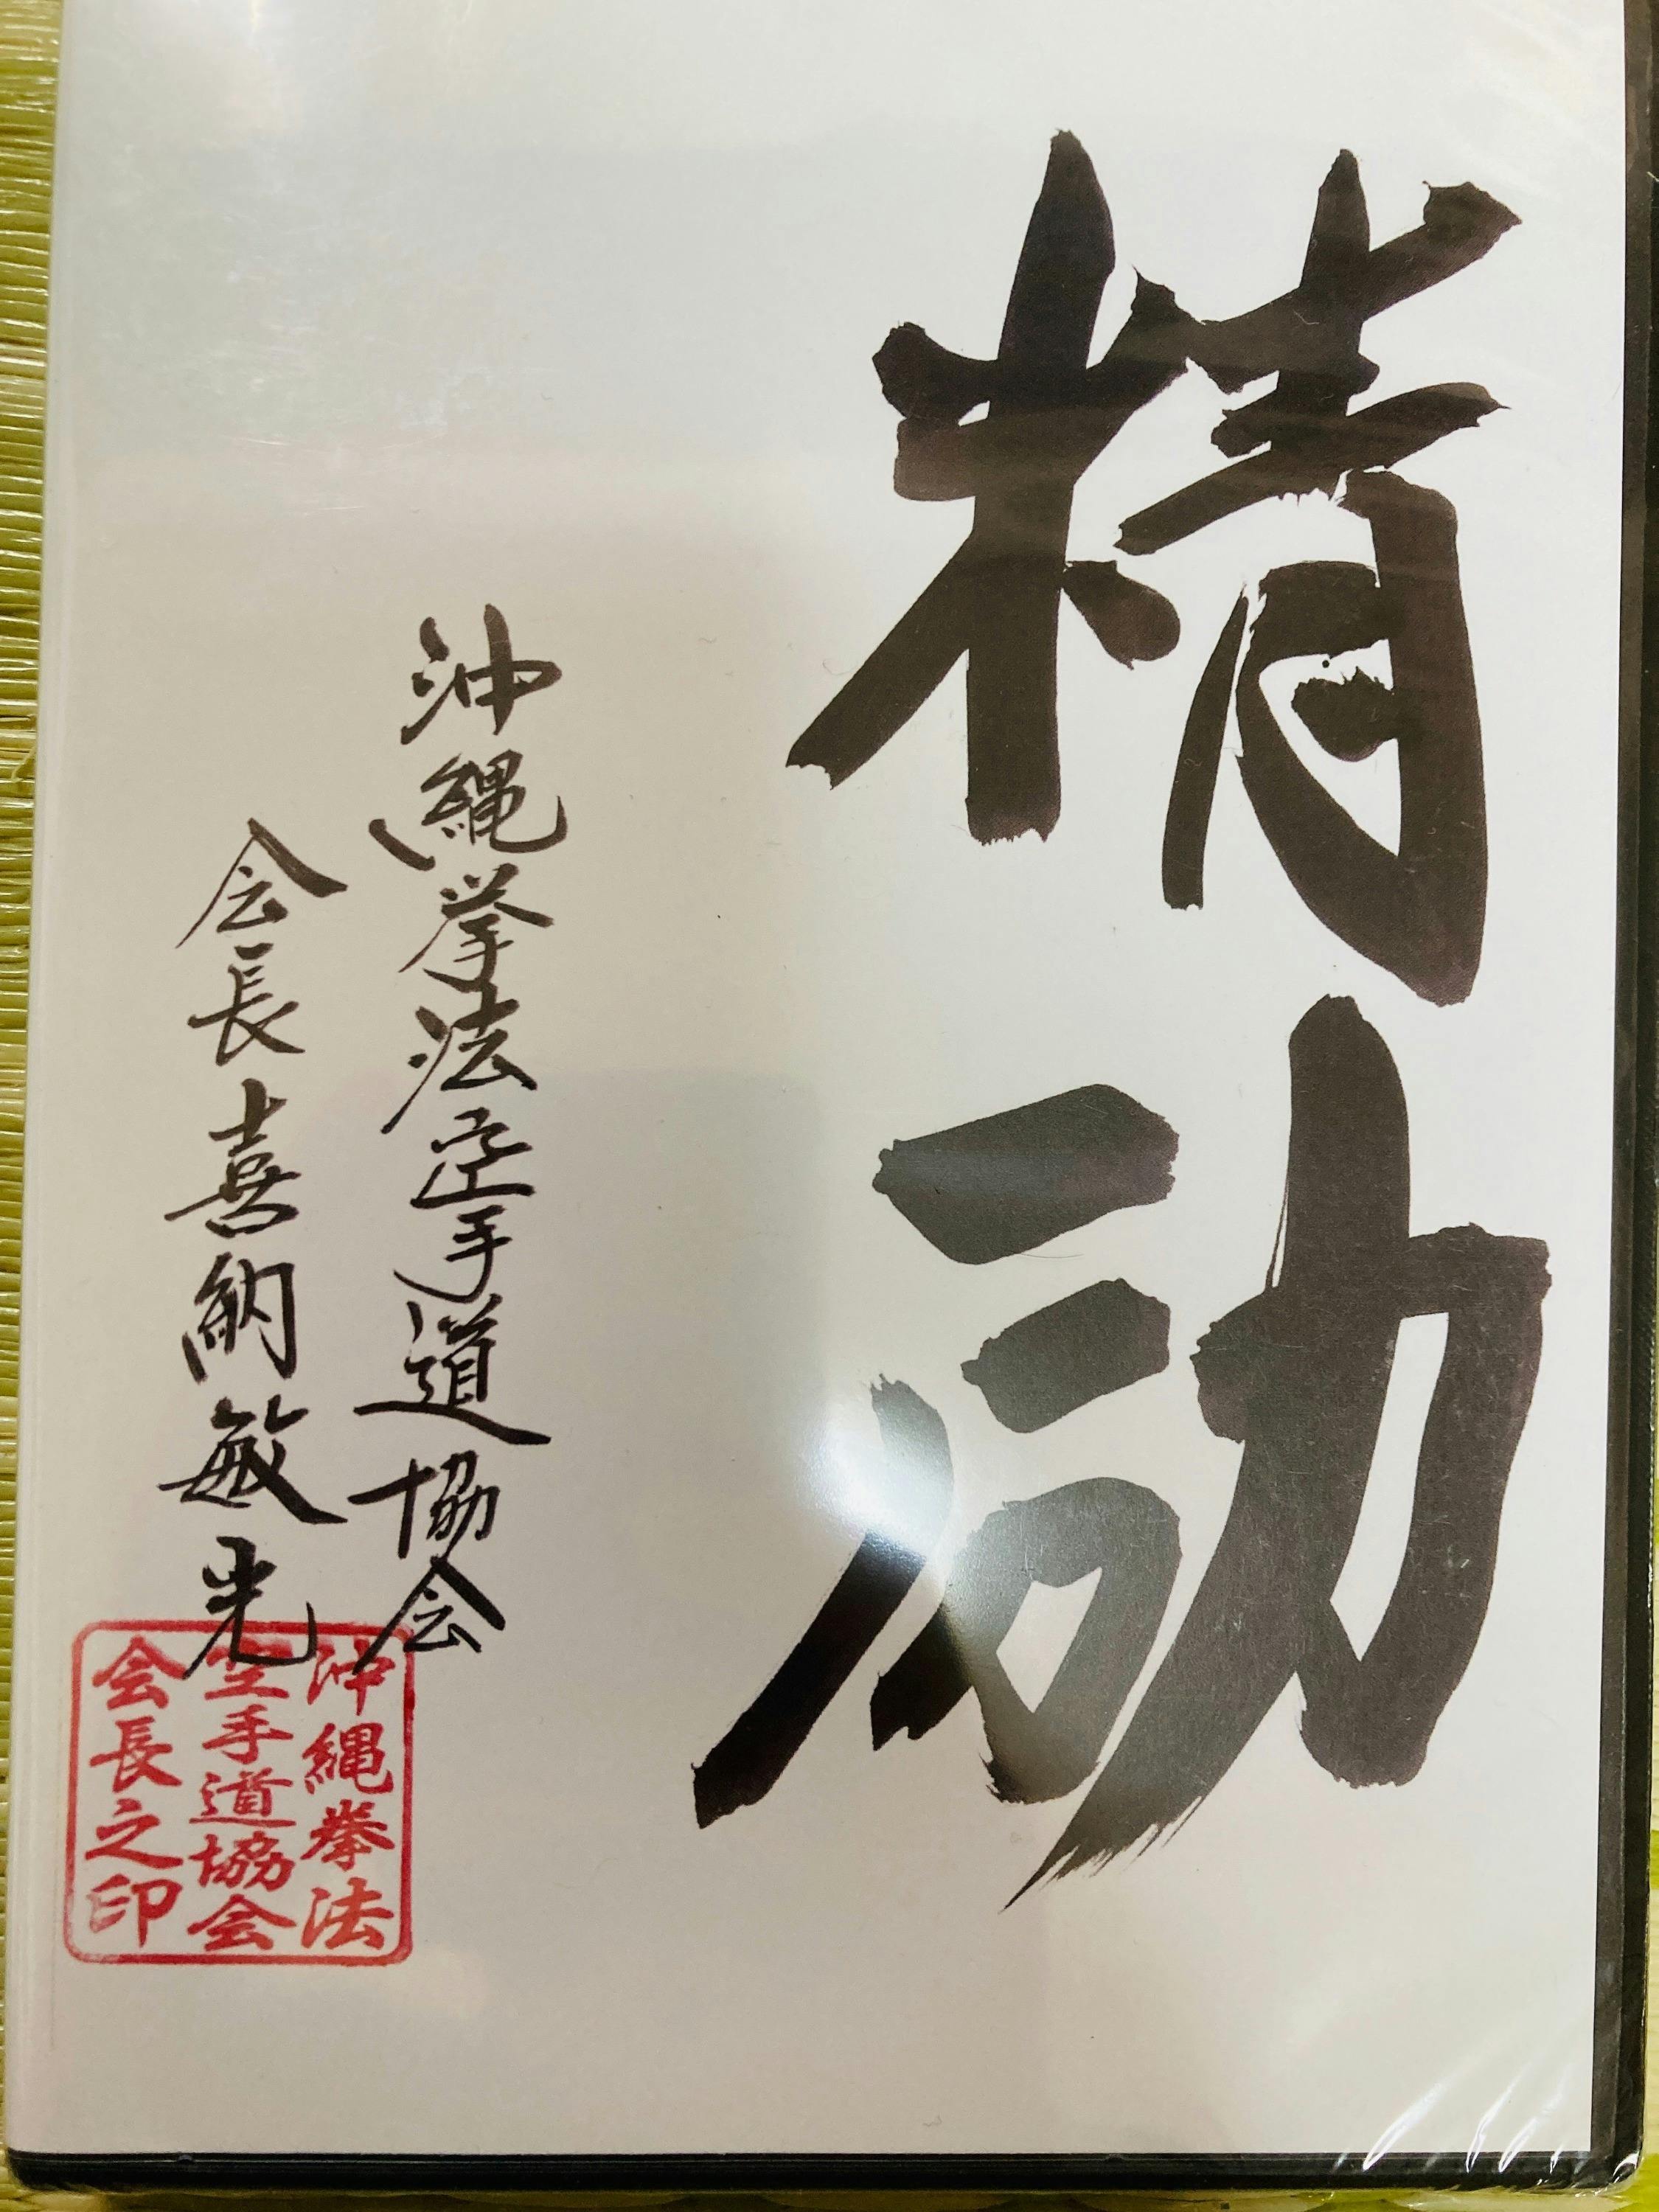 精励
沖縄拳法空手道協会
会長喜納敏光
沖縄拳法
空手道協会
会長之印